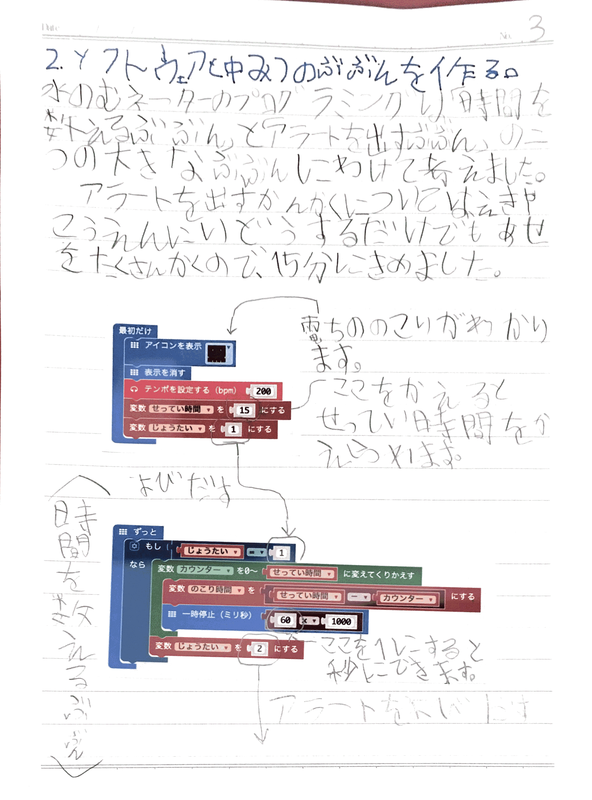 No. 3
2.ソフトウェア(中みつのぶぶんを作る。
水のむネーターのプログラミングは、時間を
数えるぶぶん、とアラートを出すぶぶん、の二
つの大きなぶぶんにわけて考えました。
アラートを出すかんかくについては、えきや
こうえんにいどうするだけでもあせ
をたくさんかくので、15分にきめました。
電ちののこりがわかり
ます。
最初だけ
アイコンを表示
表示を消す
テンポを設定する (bpm) 200
変数 せってい時間 を 15 にする
変数 じょうたい を 1 にする
ここをかえると
せってい時間をか
ます。
よびだす
時間を数えるぶぶん
ずっと
もし じょうたい = 1
なら 変数 カウンター を0〜 せってい時間 に変えてくりかえす
変数 のこり時間 を せってい時間 - カウンター にする
一時停止 (ミリ秒) 60 × 1000
変数 じょうたい を 2 にする
ここを1にすると
秒にできます。
アラートをよびだす